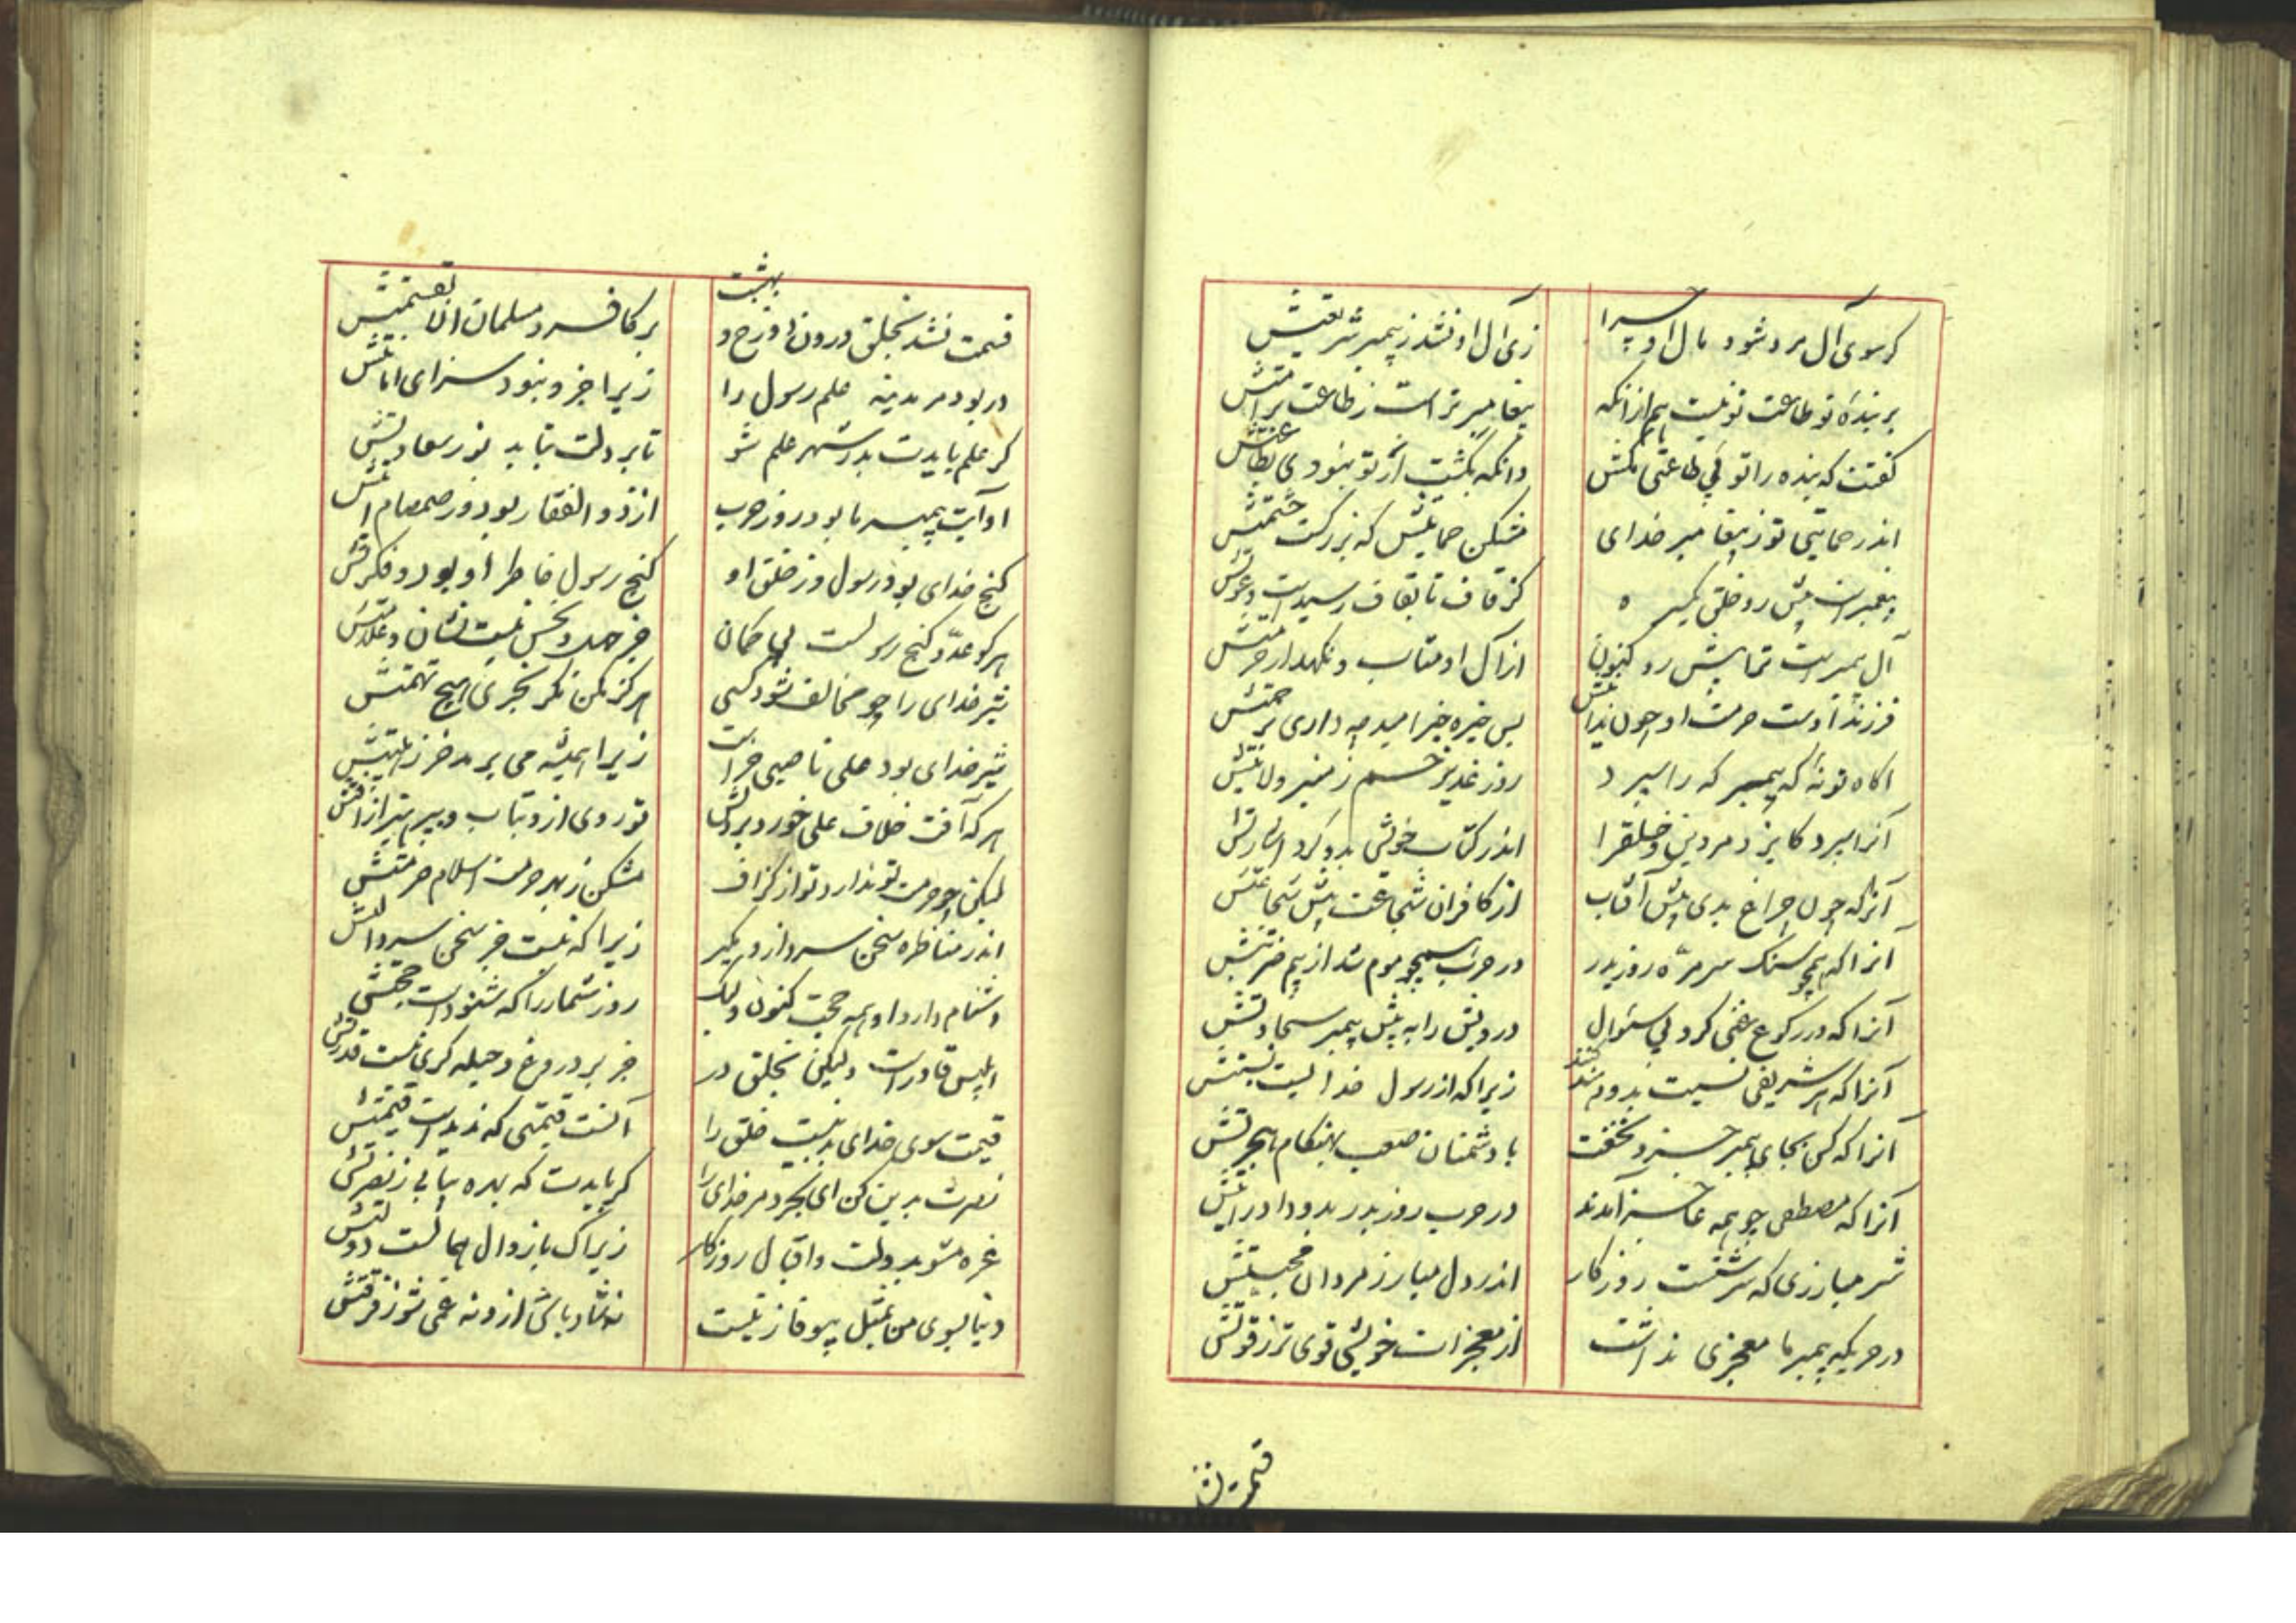 کر سوی آل مرد شود مال او چرا
زی آل او نشد ز پیمبر شریعتش
بر بنده تو طاعت تو نیست هم از انکه
پیغامبر تراست ز طاعت بر امتش
کفتت که بنده را تو بی طاعتی مکش
وانکه بکشت ار تو نبودی
اندر حمایتی تو ز پیغامبر خدای
مشکن حمایتش که بزرکست حشمتش
پیغمبر است پیش رو خلق
کز قاف تا بقاف رسیدست دعوتش
آل پیمبرست ترا پیش رو کنون
از آل او متاب و نکهدار حرمتش
فرزند اوست حرمت او چون ندانیش
پس خیره خیر امید چه داری بر حمتش
اکاه تونهٔ که پیمبر که را سپرد
روز غدیر خم ز منبر ولایتش
آنرا سپرد کایزد مر دین و خلقرا
اندر کتاب خویش بدو کرد اشارتش
آنرا که چون چراغ بدی پیش آفتاب
از کافران شجاعت پیش شجاعتش
آنرا که همچو سنک سر مرّه روز بدر
در حرب همچو موم شد از بیم ضربتش
آنرا که در رکوع غنی کرد بی سئوال
درویش را به پیش پیمبر سخاوتش
آنرا که هر شریفی نسبت بدو کنند
زیرا که از رسول خدایست نسبتش
آنرا که کس بجای پیمبر جز او نخفت
با دشمنان صعب بهنکام هجرتش
آنرا که مصطفی چو همه عاجز آمدند
در حرب روز بدر بدو داد رایتش
شیر مبارزی که سرشتست روزکار
اندر دل مبارز مردان محبتش
در حربکه پیمبر ما معجزی نداشت
از معجزات خویش قوی تر ز قوتش
قسمت نشد
قسمت نشد بخلق درون دوزخ و بهشت
بر کافر و مسلمان الا بقسمتش
در بود مر مدینه علم رسول را
زیرا جز او نبود سزای امانتش
کر علم بایدت بدر شهر علم شو
تا بر دلت بتابد نور سعادتش
او آیت پیمبر ما بود روز حرب
از ذو الفقار بود و ز صمصام آیتش
کنج خدای بود رسول و ز خلق او
کنج رسول خاطر او بود و فکرتش
هر کو عدّو کنج رسولست بی کمان
جز جهل و نحس نیست نشان و علامتش
شیر خدای را چو مخالف شود کسی
هرکز مکن مکر بخری هیچ تهمتش
شیر خدای بود علی ناصبی خر است
زیرا همیشه می برمد خر ز هیبتش
هر که آفت خلاف علی خورد بر دلش
تو روی ازو بتاب و بپرهیز از آفتش
لیکن چو حرمت تو ندارد تو از کزاف
مشکن ز بهر حرمت اسلام حرمتش
اندر مناظره سخن سرد ازو مکیر
زیرا که نیست جز سخن سرد آلتش
دشنام دارد او همه حجت کنون ولیک
روز شمار را که شنود است حجتش
ابلیس قادرست ولیکن بخلق در
جز بر دروغ و حیله کری نیست قدرتش
قیمت سوی خدای بدینست خلق را
آنست قیمتی که بدینست قیمتش
نصرت بدین کن ای بخرد مر خدای را
کر بایدت که بهره بیابی ز نصرتش
غره مشو بدولت و اقبال روزکار
زیراک با زوال همالست دولتش
دنیا بسوی من بمثل بیوفا زنیست
نه شاد باش ازو نه غمی شو ز فرقتش